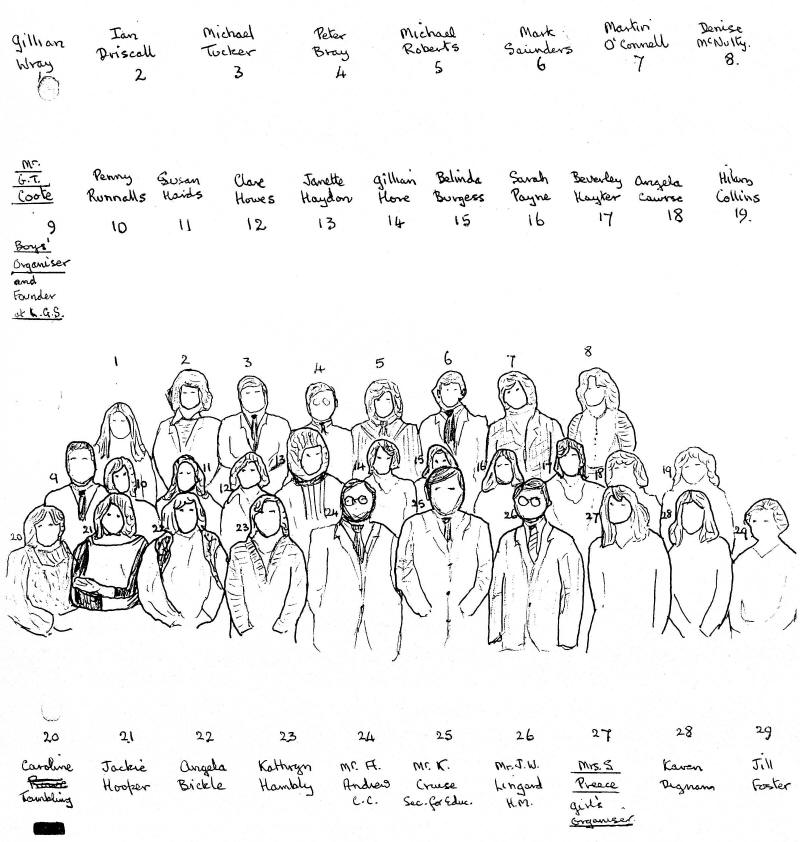 Gillian Wray 1
Ian Driscall 2
Michael Tucker 3
Peter Bray 4
Michael Roberts 5
Mark Saunders 6
Martin O'Connell 7
Denise McNulty. 8.
Mr. G.T. Coote 9 Boys' Organiser and Founder at L.G.S.
Penny Runnalls 10
Susan 11
Clare Howes 12
Janette Haydon 13
Gillian Hore 14
Belinda Burgess 15
Sarah Payne 16
Beverley Hayter 17
Angela Cawrse 18
Hilary Collins 19.
1 2 3 4 5 6 7 8
9 10 11 12 13 14 15 16 17 18 19
20 21 22 23 24 25 26 27 28 29
20 Caroline Tambling
21 Jackie Hooper
22 Angela Bickle
23 Kathryn Hambly
24 Mr. A. Andrew C.C.
25 Mr. K. Cruise Sec. for Educ.
26 Mr. J.W. Lingard H.M.
27 Mrs. S Preece girl's organiser.
28 Karen Dignam
29 Jill Foster